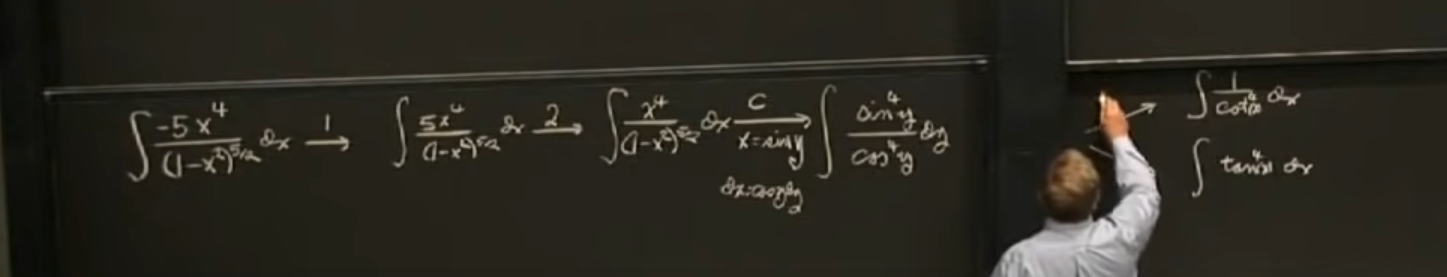 ∫ -5x⁴/(1-x²)^5/2 dx 1→ ∫ 5x⁴/(1-x²)^5/2 dx 2→ ∫ x⁴/(1-x²)^5/2 dx C→ x=sin y ∫ sin⁴y/cos⁴y dy
dx=cos y dy
∫ 1/cot⁴x dx
∫ tan⁴x dx